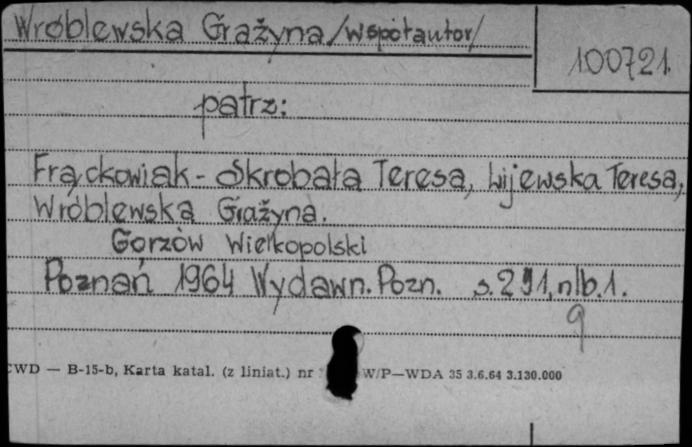 Wróblewska Grażyna /współautor/
100721.
patrz:
Frąckowiak-Skrobała Teresa, Lijewska Teresa,
Wróblewska Grażyna.
Gorzów Wielkopolski
Poznań 1964 Wydawn. Pozn. s. 291, nlb. 1.
9
CWD — B-15-b, Karta katal. (z liniat.) nr W/P—WDA 35 3.6.64 3.130.000